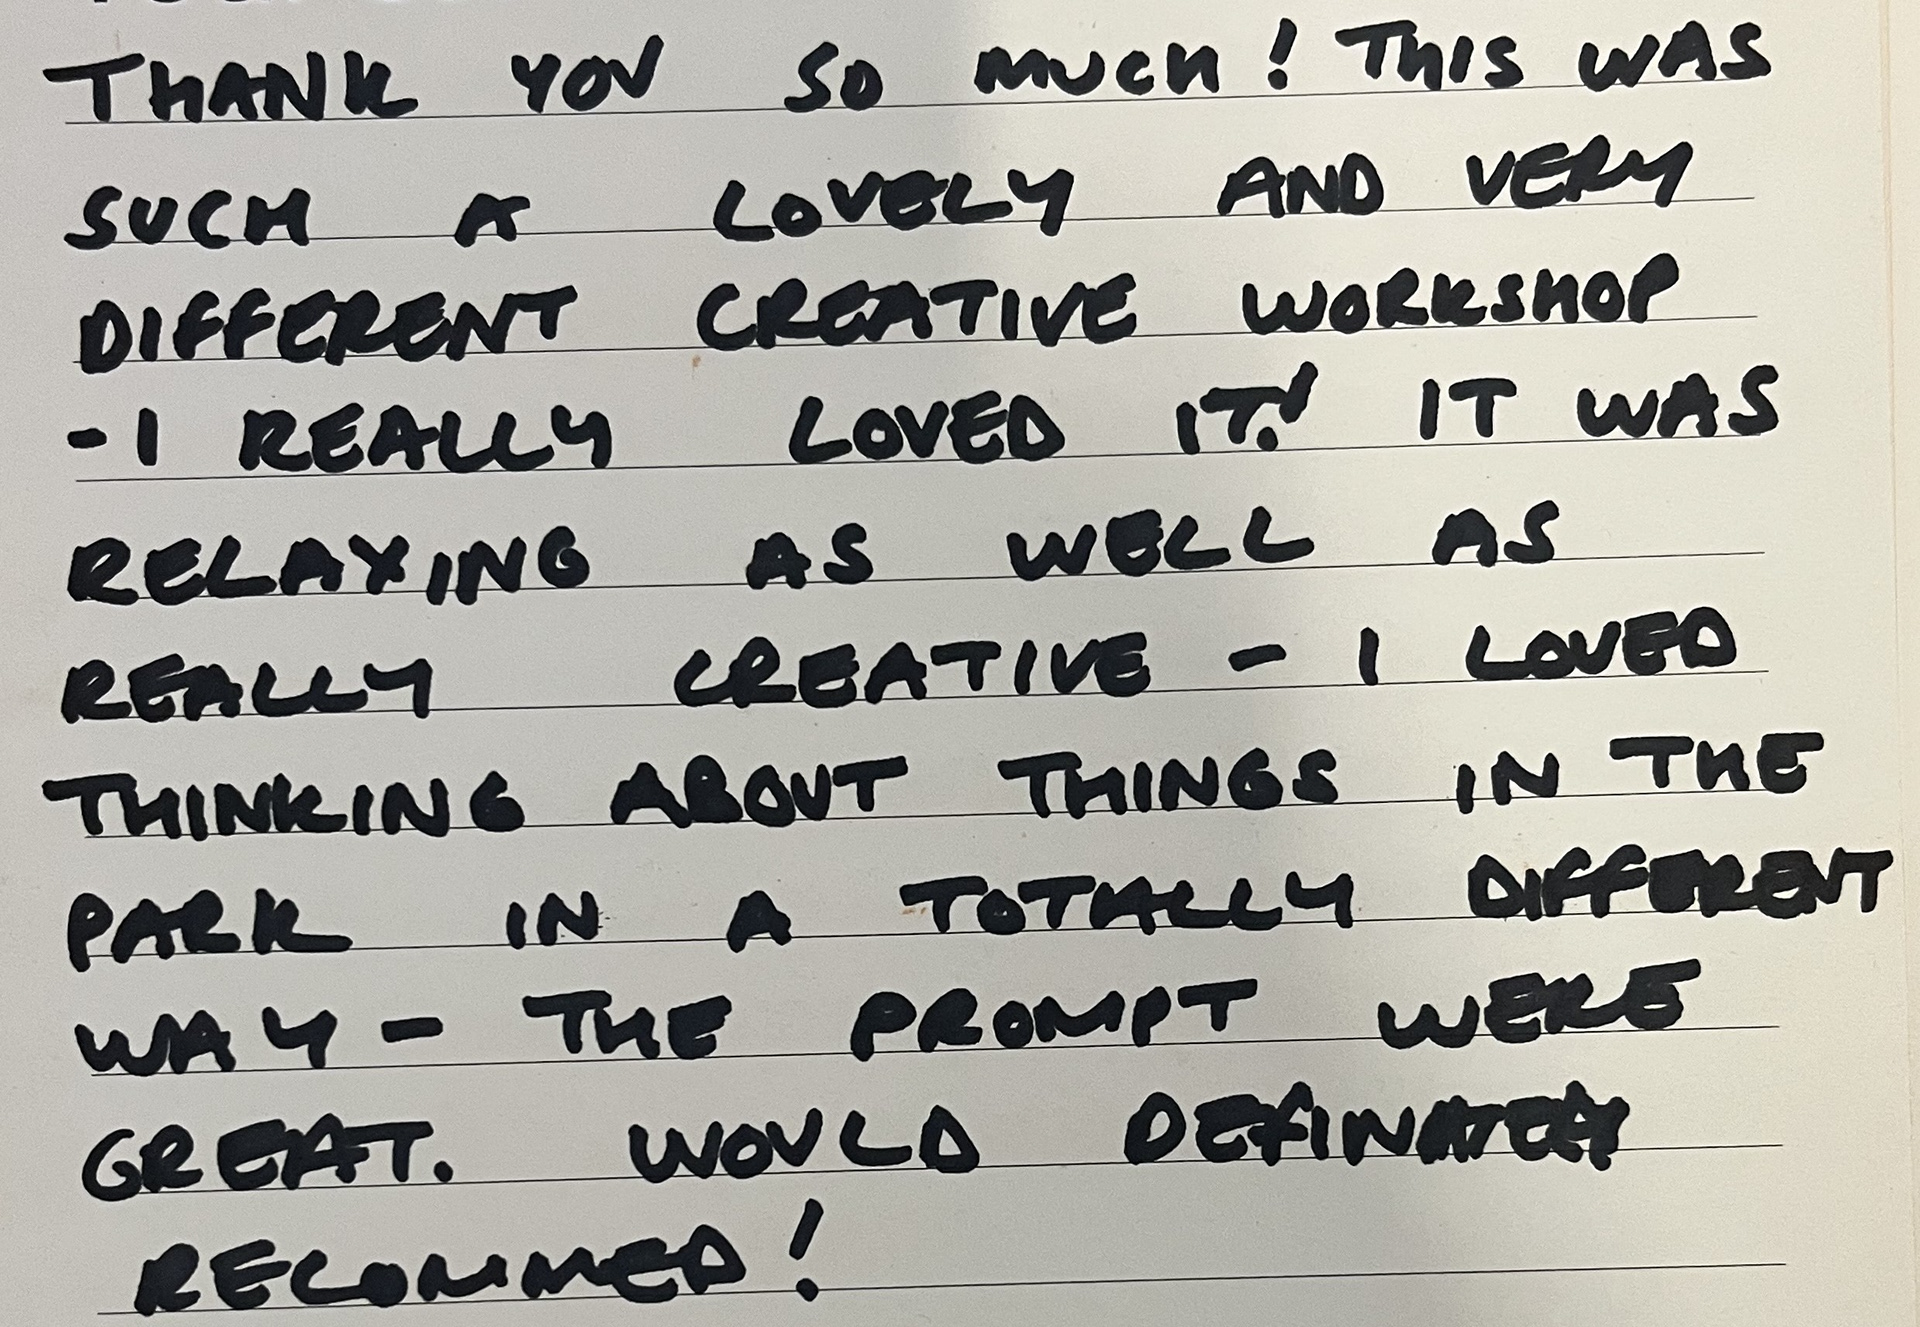 THANK YOU SO MUCH! THIS WAS
SUCH A LOVELY AND VERY
DIFFERENT CREATIVE WORKSHOP
- I REALLY LOVED IT! IT WAS
RELAXING AS WELL AS
REALLY CREATIVE - I LOVED
THINKING ABOUT THINGS IN THE
PARK IN A TOTALLY DIFFERENT
WAY - THE PROMPT WERE
GREAT. WOULD DEFINATELY
RECOMMED!